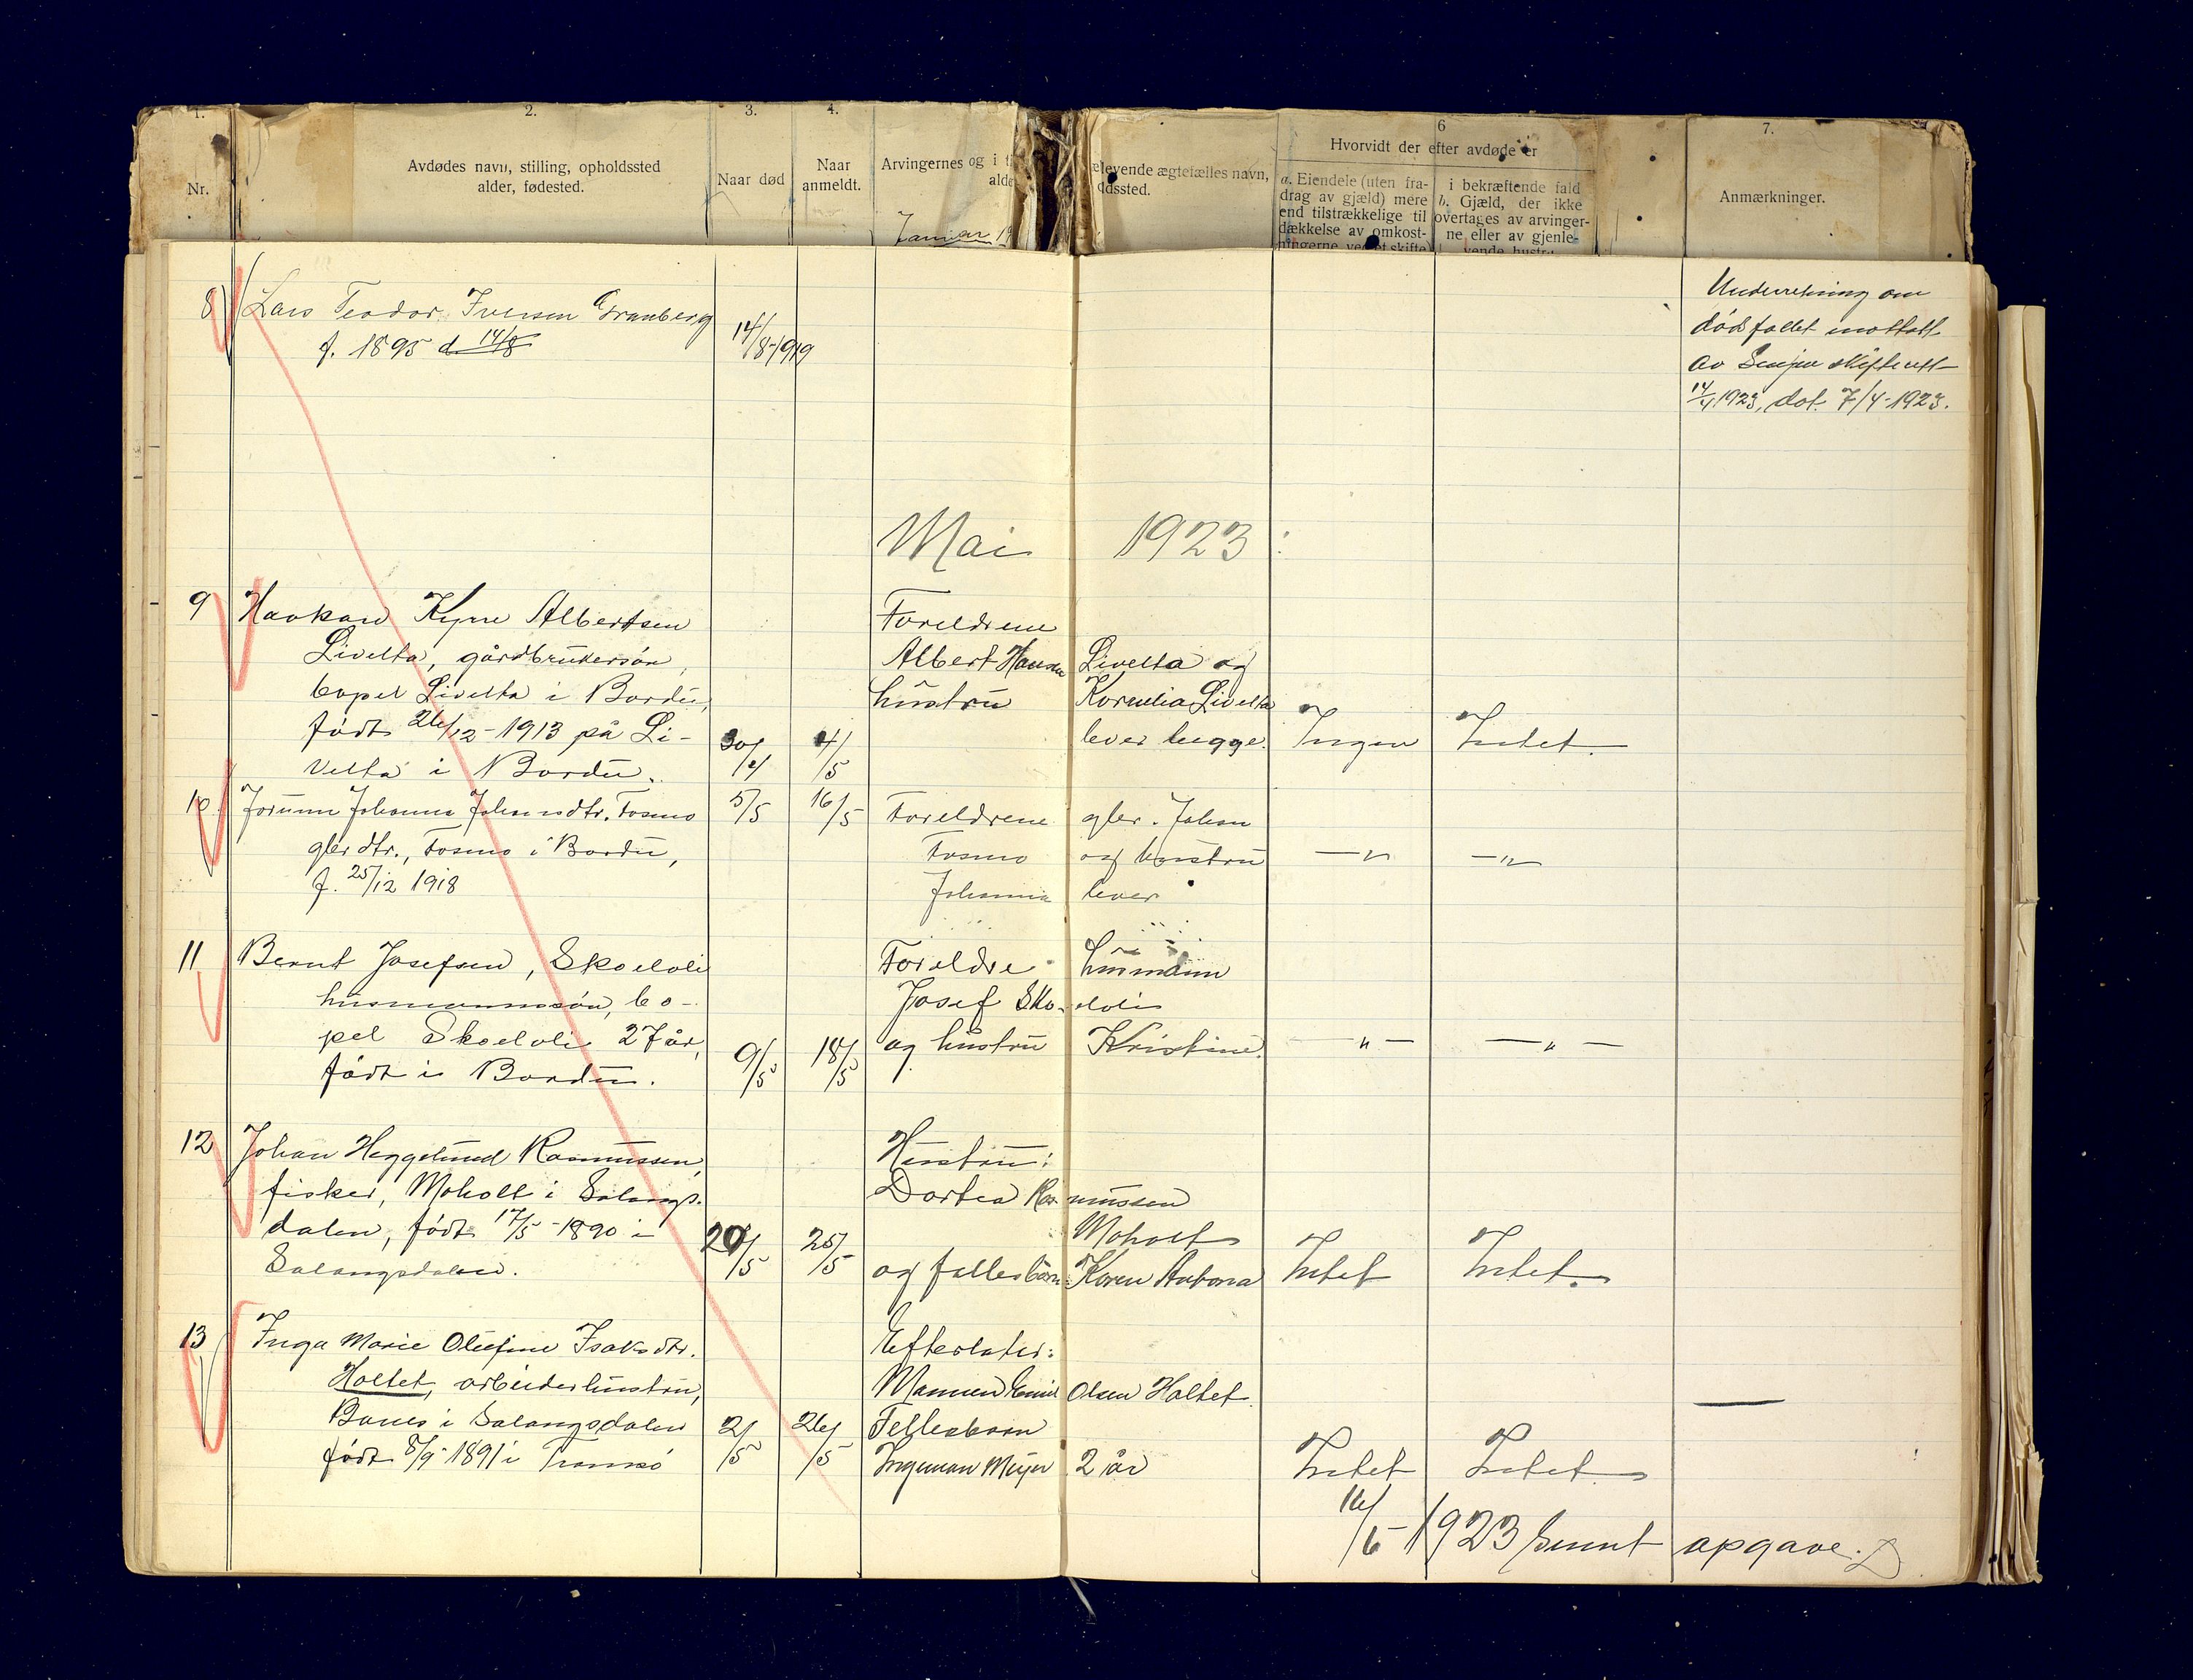 1.
2.
3.
4.
6
7.
Nr.
Avdødes navn, stilling, opholdssted
alder, fødested.
Naar død
Naar
anmeldt.
Arvingernes og i
elevende ægtefælles navn,
dssted.
Hvorvidt der efter avdøde er
a. Eiendele (uten fra-
drag av gjæld) mere
end tilstrækkelige til
dækkelse av omkost-
ningerne ved et skifte
i bekræftende fald
b. Gjæld, der ikke
overtages av arvinger-
ne eller av gjenle-
vende hustru
Anmærkninger.
Januar 19
8 Lars Teodor Iversen Granberg
f. 1895 d 14/8
14/8-1919
Underretning om
dödsfallet mottatt
av Senjen skifterett
14/4 1923, dat. 7/4-1923.
Mai 1923:
9 Haakon Kyrre Albertsen
Livelta, gårdbrukersön,
bopel Livelta i Bardu,
födt 26/12-1913 på Li-
velta i Bardu.
30/4
4/5
Foreldrene
Albert Hansen Livelta og
hustru Kornelia Livelta
lever begge.
Ingen
Intet.
10 Jorunn Johanna Johansdtr. Fosmo
gbr dtr., Fosmo i Bardu,
f. 25/12 1918
5/5
16/5
Foreldrene gbr. Johan
Fosmo og hustru
Johanna lever
—"—
—"—
11 Bernt Josefsen, Skoelvli
husmannssön, bo-
pel Skoelvli 27 år,
födt i Bardu.
9/5
18/5
Foreldre husmann
Josef Sko-elvli
og hustru Kristine.
—"—
—"—
12 Johan Heggelund Rasmussen,
fisker, Moholt i Salangs-
dalen, födt 17/5-1890 i
Salangsdalen.
20/5
25/5
Hustru:
Dortea Rasmussen
Moholt
og fellesbarn Karen Antona
Intet
Intet.
13 Inga Marie Olufine Isaksdtr.
Holtet, arbeiderhustru,
Bones i Salangsdalen
födt 8/9-1891 i Tromsö
2/5
26/5
Efterlater:
Mannen Emil Olsen Holtet.
Fellesbarn
Ingeman Meyer 2 år
Intet
Intet
—
16/6-1923 sendt opgave.